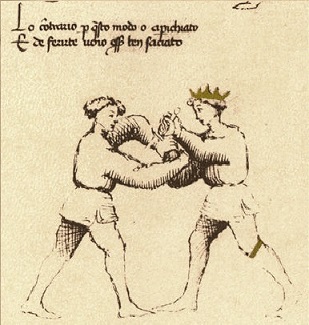 Lo cōtrario ꝑ q̄sto modo o aꝑichiato
E de ferirte uoio ben saciato